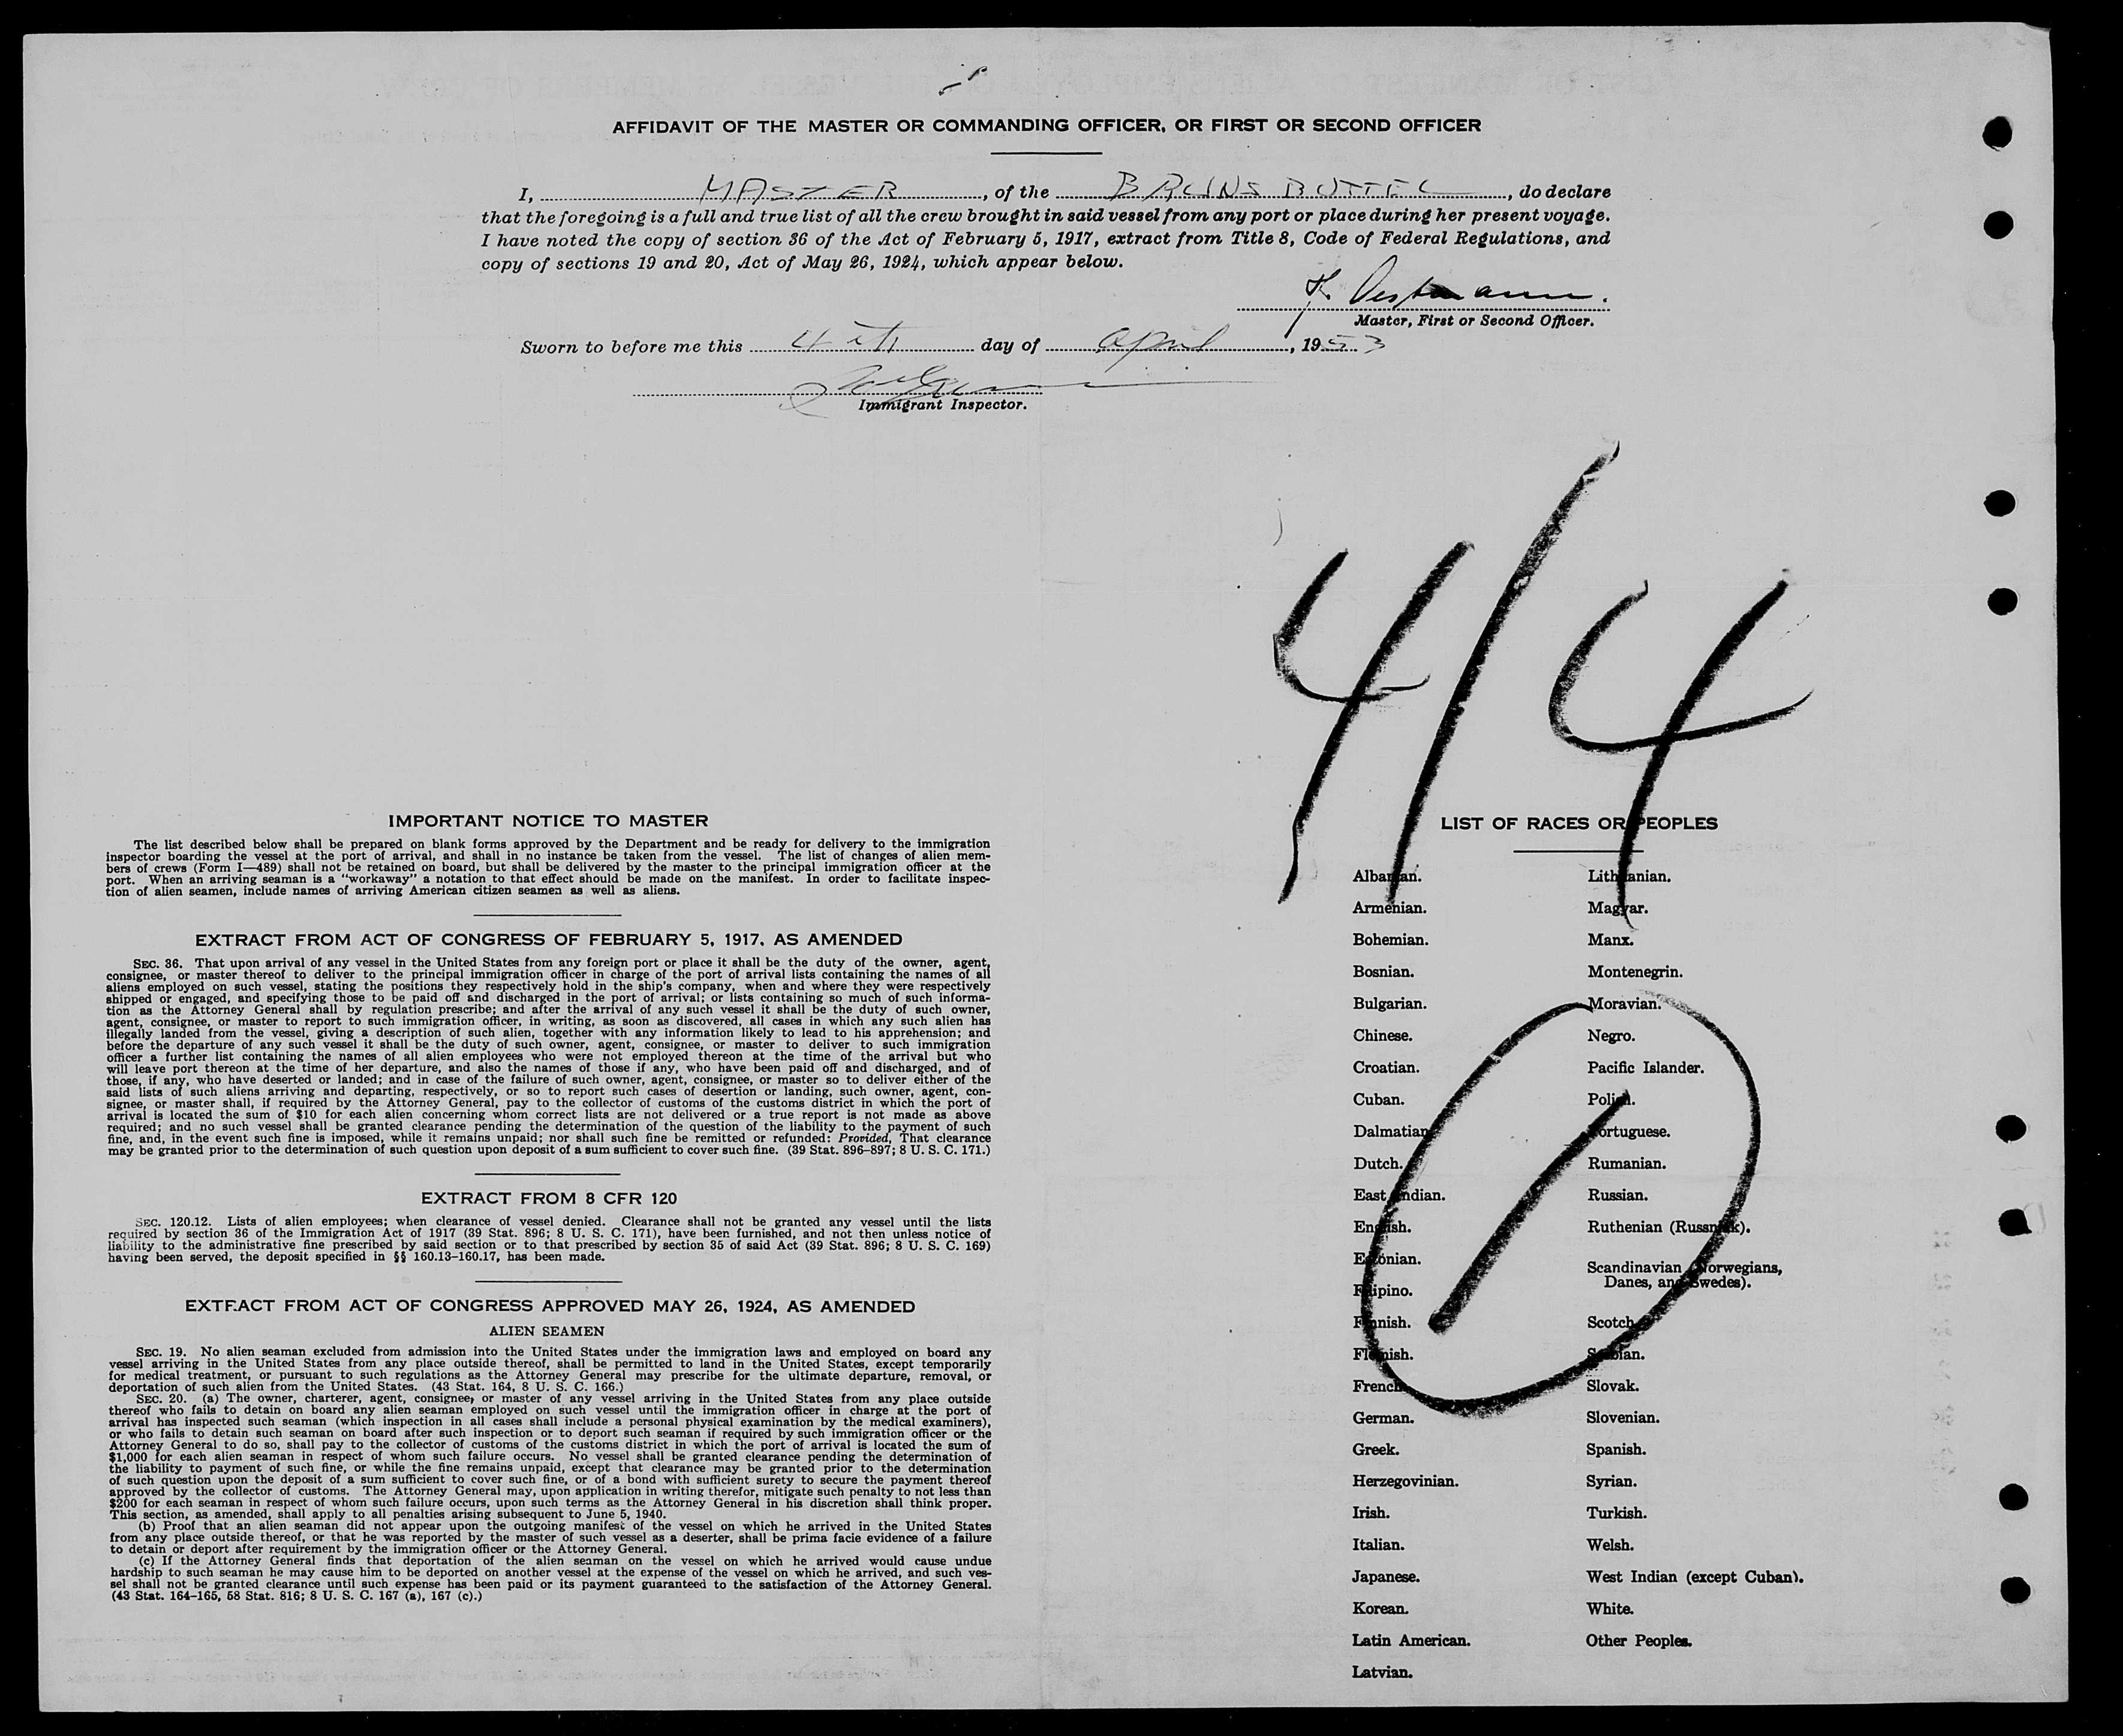 AFFIDAVIT OF THE MASTER OR COMMANDING OFFICER, OR FIRST OR SECOND OFFICER
I, MASTER, of the BRUNSBUTTEL, do declare
that the foregoing is a full and true list of all the crew brought in said vessel from any port or place during her present voyage.
I have noted the copy of section 36 of the Act of February 5, 1917, extract from Title 8, Code of Federal Regulations, and
copy of sections 19 and 20, Act of May 26, 1924, which appear below.
Master, First or Second Officer.
Sworn to before me this 4th day of April, 1953
Immigrant Inspector.
4/4
IMPORTANT NOTICE TO MASTER
The list described below shall be prepared on blank forms approved by the Department and be ready for delivery to the immigration
inspector boarding the vessel at the port of arrival, and shall in no instance be taken from the vessel. The list of changes of alien mem-
bers of crews (Form I—489) shall not be retained on board, but shall be delivered by the master to the principal immigration officer at the
port. When an arriving seaman is a "workaway" a notation to that effect should be made on the manifest. In order to facilitate inspec-
tion of alien seamen, include names of arriving American citizen seamen as well as aliens.
EXTRACT FROM ACT OF CONGRESS OF FEBRUARY 5, 1917, AS AMENDED
SEC. 36. That upon arrival of any vessel in the United States from any foreign port or place it shall be the duty of the owner, agent,
consignee, or master thereof to deliver to the principal immigration officer in charge of the port of arrival lists containing the names of all
aliens employed on such vessel, stating the positions they respectively hold in the ship's company, when and where they were respectively
shipped or engaged, and specifying those to be paid off and discharged in the port of arrival; or lists containing so much of such informa-
tion as the Attorney General shall by regulation prescribe; and after the arrival of any such vessel it shall be the duty of such owner,
agent, consignee, or master to report to such immigration officer, in writing, as soon as discovered, all cases in which any such alien has
illegally landed from the vessel, giving a description of such alien, together with any information likely to lead to his apprehension; and
before the departure of any such vessel it shall be the duty of such owner, agent, consignee, or master to deliver to such immigration
officer a further list containing the names of all alien employees who were not employed thereon at the time of the arrival but who
will leave port thereon at the time of her departure, and also the names of those if any, who have been paid off and discharged, and of
those, if any, who have deserted or landed; and in case of the failure of such owner, agent, consignee, or master so to deliver either of the
said lists of such aliens arriving and departing, respectively, or so to report such cases of desertion or landing, such owner, agent, con-
signee, or master shall, if required by the Attorney General, pay to the collector of customs of the customs district in which the port of
arrival is located the sum of $10 for each alien concerning whom correct lists are not delivered or a true report is not made as above
required; and no such vessel shall be granted clearance pending the determination of the question of the liability to the payment of such
fine, and, in the event such fine is imposed, while it remains unpaid; nor shall such fine be remitted or refunded: Provided, That clearance
may be granted prior to the determination of such question upon deposit of a sum sufficient to cover such fine. (39 Stat. 896–897; 8 U. S. C. 171.)
EXTRACT FROM 8 CFR 120
SEC. 120.12. Lists of alien employees; when clearance of vessel denied. Clearance shall not be granted any vessel until the lists
required by section 36 of the Immigration Act of 1917 (39 Stat. 896; 8 U. S. C. 171), have been furnished, and not then unless notice of
liability to the administrative fine prescribed by said section or to that prescribed by section 35 of said Act (39 Stat. 896; 8 U. S. C. 169)
having been served, the deposit specified in §§ 160.13–160.17, has been made.
EXTRACT FROM ACT OF CONGRESS APPROVED MAY 26, 1924, AS AMENDED
ALIEN SEAMEN
SEC. 19. No alien seaman excluded from admission into the United States under the immigration laws and employed on board any
vessel arriving in the United States from any place outside thereof, shall be permitted to land in the United States, except temporarily
for medical treatment, or pursuant to such regulations as the Attorney General may prescribe for the ultimate departure, removal, or
deportation of such alien from the United States. (43 Stat. 164, 8 U. S. C. 166.)
SEC. 20. (a) The owner, charterer, agent, consignee, or master of any vessel arriving in the United States from any place outside
thereof who fails to detain on board any alien seaman employed on such vessel until the immigration officer in charge at the port of
arrival has inspected such seaman (which inspection in all cases shall include a personal physical examination by the medical examiners),
or who fails to detain such seaman on board after such inspection or to deport such seaman if required by such immigration officer or the
Attorney General to do so, shall pay to the collector of customs of the customs district in which the port of arrival is located the sum of
$1,000 for each alien seaman in respect of whom such failure occurs. No vessel shall be granted clearance pending the determination of
the liability to payment of such fine, or while the fine remains unpaid, except that clearance may be granted prior to the determination
of such question upon the deposit of a sum sufficient to cover such fine, or of a bond with sufficient surety to secure the payment thereof
approved by the collector of customs. The Attorney General may, upon application in writing therefor, mitigate such penalty to not less than
$200 for each seaman in respect of whom such failure occurs, upon such terms as the Attorney General in his discretion shall think proper.
This section, as amended, shall apply to all penalties arising subsequent to June 5, 1940.
(b) Proof that an alien seaman did not appear upon the outgoing manifest of the vessel on which he arrived in the United States
from any place outside thereof, or that he was reported by the master of such vessel as a deserter, shall be prima facie evidence of a failure
to detain or deport after requirement by the immigration officer or the Attorney General.
(c) If the Attorney General finds that deportation of the alien seaman on the vessel on which he arrived would cause undue
hardship to such seaman he may cause him to be deported on another vessel at the expense of the vessel on which he arrived, and such ves-
sel shall not be granted clearance until such expense has been paid or its payment guaranteed to the satisfaction of the Attorney General.
(43 Stat. 164–165, 58 Stat. 816; 8 U. S. C. 167 (a), 167 (c).)
LIST OF RACES OR PEOPLES
Albanian.
Armenian.
Bohemian.
Bosnian.
Bulgarian.
Chinese.
Croatian.
Cuban.
Dalmatian.
Dutch.
East Indian.
English.
Estonian.
Filipino.
Finnish.
Flemish.
French.
German.
Greek.
Herzegovinian.
Irish.
Italian.
Japanese.
Korean.
Latin American.
Latvian.
Lithuanian.
Magyar.
Manx.
Montenegrin.
Moravian.
Negro.
Pacific Islander.
Polish.
Portuguese.
Rumanian.
Russian.
Ruthenian (Russniak).
Scandinavian (Norwegians,
Danes, and Swedes).
Scotch.
Serbian.
Slovak.
Slovenian.
Spanish.
Syrian.
Turkish.
Welsh.
West Indian (except Cuban).
White.
Other Peoples.
1